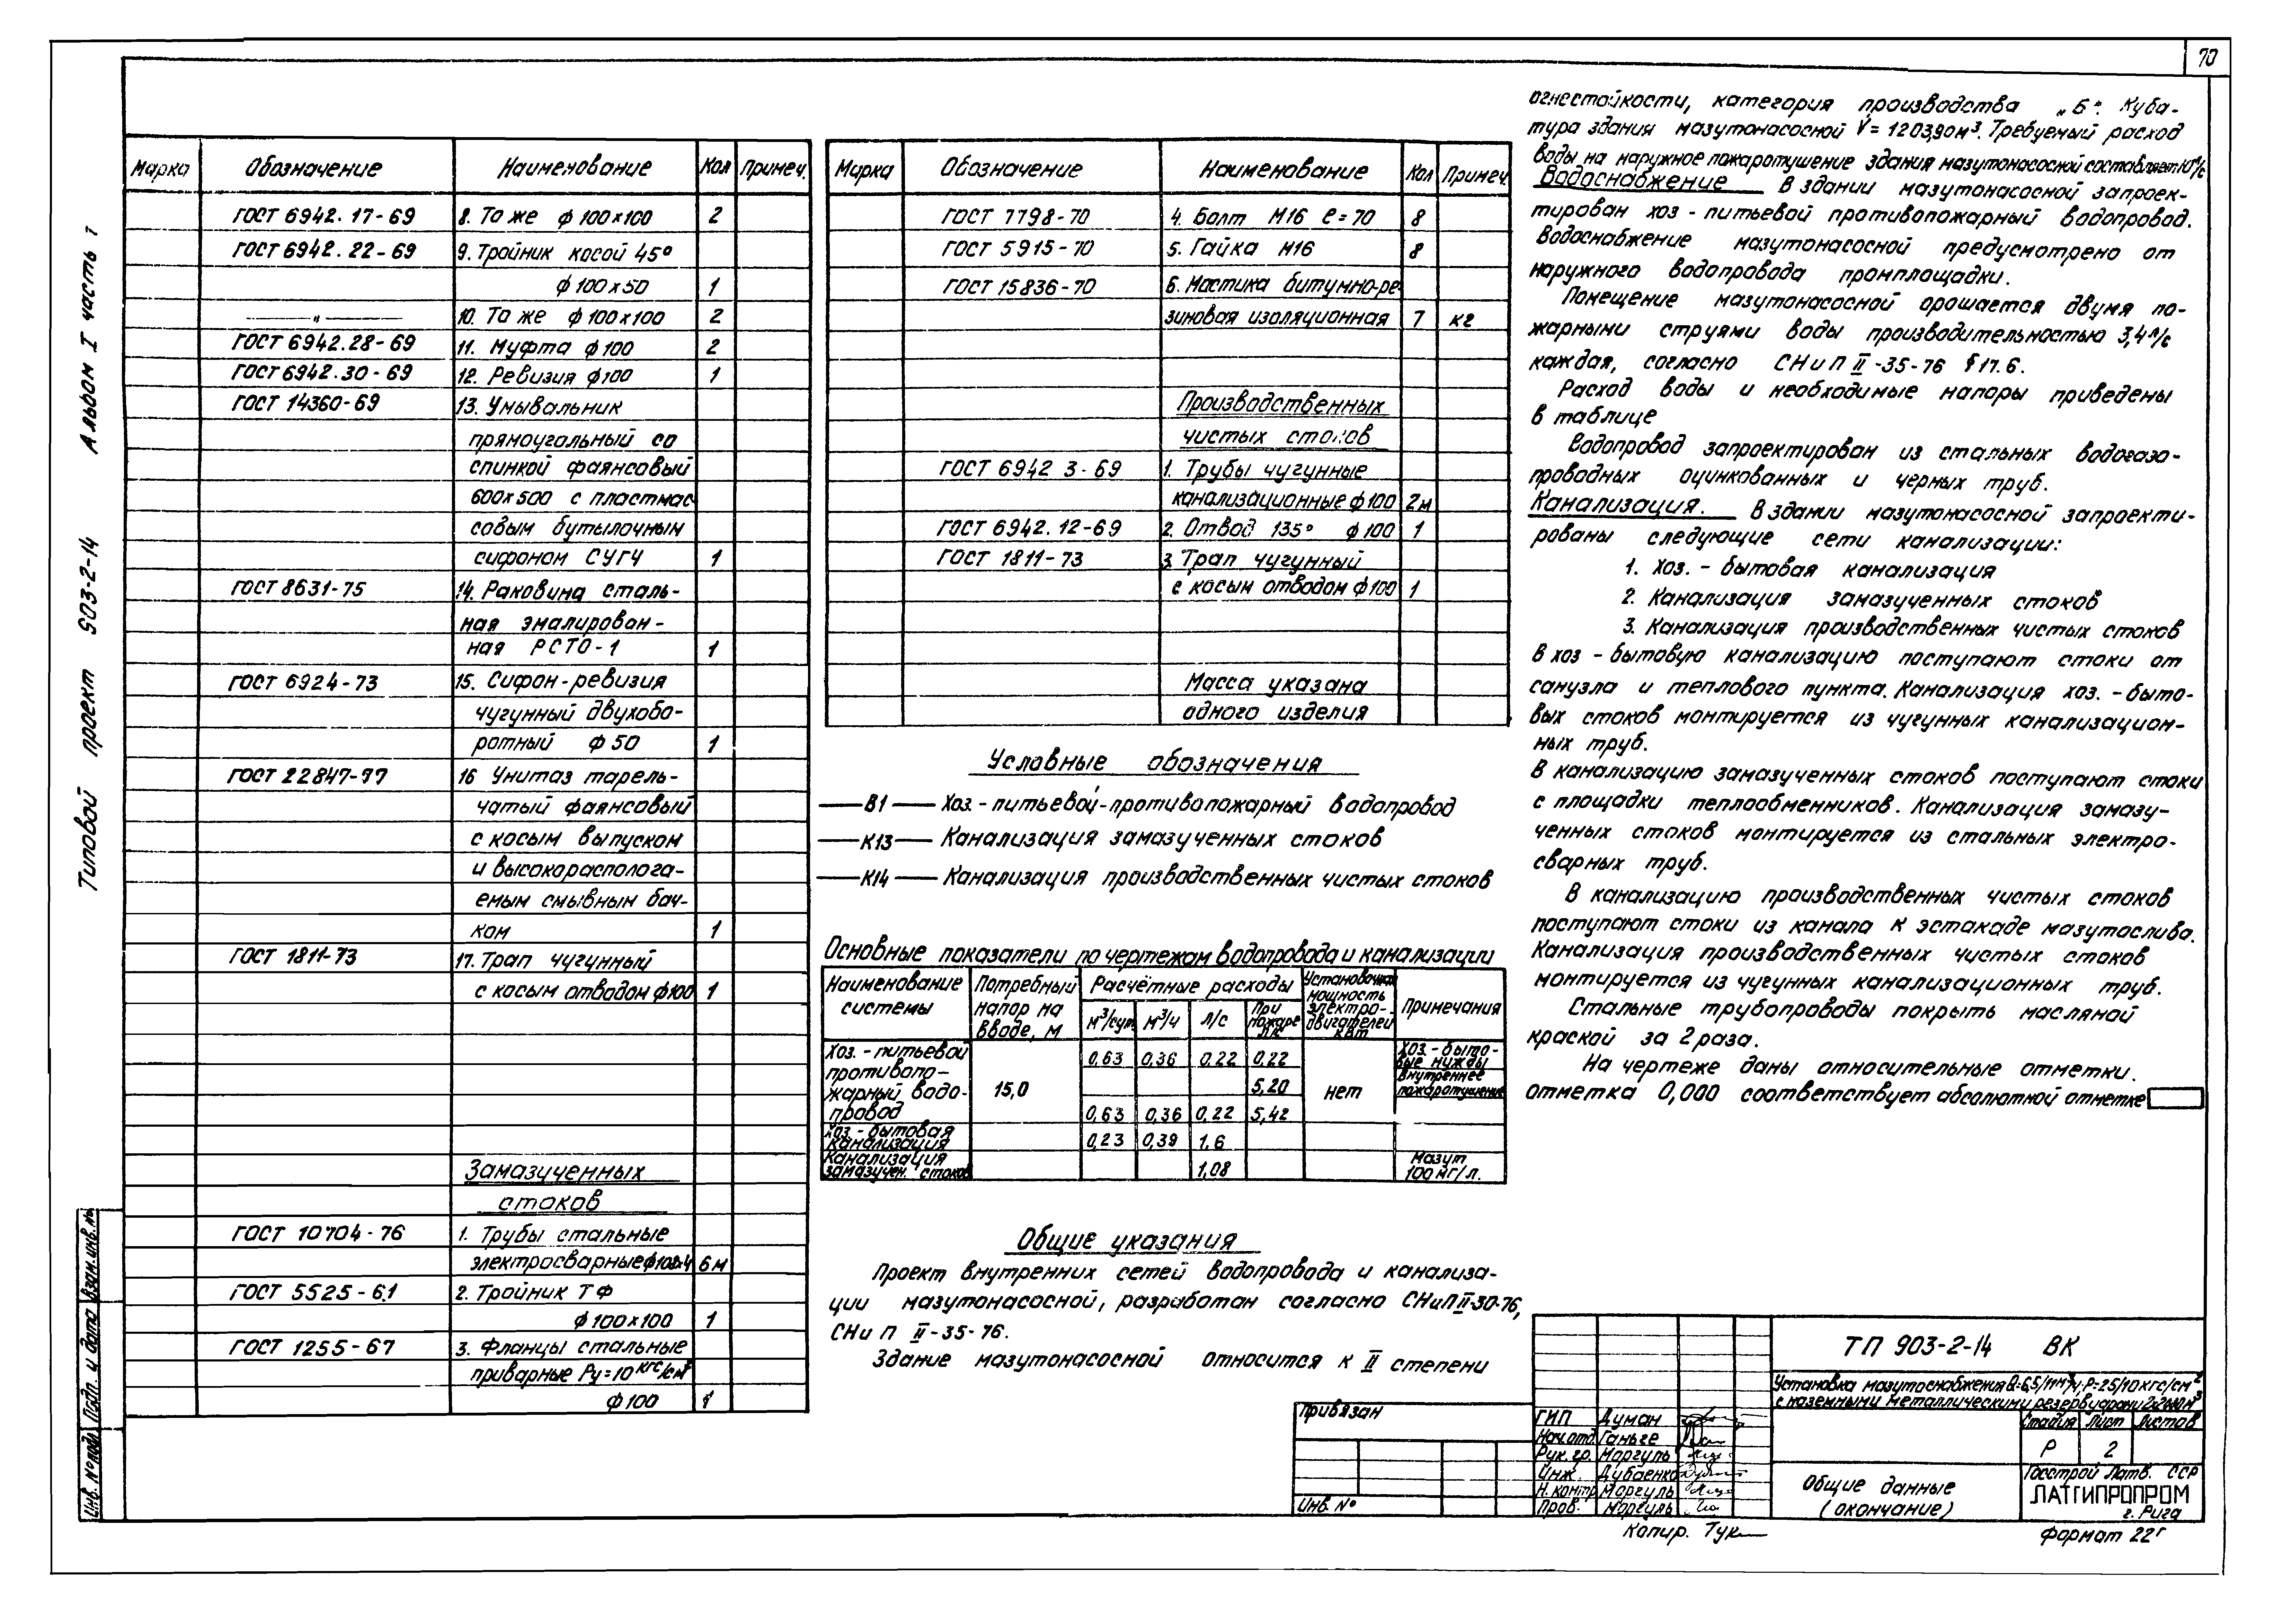 70
Типовой проект 903-2-14 Альбом I часть 1
Марка Обозначение Наименование Кол Примеч.
ГОСТ 6942.17-69 8. То же ф 100х100 2
ГОСТ 6942.22-69 9. Тройник косой 45°
ф 100х50 1
—„— 10. То же ф 100х100 2
ГОСТ 6942.28-69 11. Муфта ф 100 2
ГОСТ 6942.30-69 12. Ревизия ф100 1
ГОСТ 14360-69 13. Умывальник
прямоугольный со
спинкой фаянсовый
600х500 с пластмас
совым бутылочным
сифоном СУГЧ 1
ГОСТ 8631-75 14. Раковина сталь-
ная эмалирован-
ная РСТО-1 1
ГОСТ 6924-73 15. Сифон-ревизия
чугунный двухобо-
ротный ф 50 1
ГОСТ 22847-77 16 Унитаз тарель-
чатый фаянсовый
с косым выпуском
и высокорасполога-
емым смывным бач-
ком 1
ГОСТ 1811-73 17. Трап чугунный
с косым отводом ф100 1
Замазученных
стоков
ГОСТ 10704-76 1. Трубы стальные
электросварные 6 м
ГОСТ 5525-61 2. Тройник ТФ
ф 100х100 1
ГОСТ 1255-67 3. Фланцы стальные
приварные Ру=10 кгс/см²
ф 100 1
Марка Обозначение Наименование Кол Примеч.
ГОСТ 7798-70 4. Болт М16 ℓ=70 8
ГОСТ 5915-70 5. Гайка М16 8
ГОСТ 15836-70 6. Мастика битумно-ре
зиновая изоляционная 7 кг
Производственных
чистых стоков
ГОСТ 6942 3-69 1. Трубы чугунные
канализационные ф 100 2м
ГОСТ 6942.12-69 2. Отвод 135° ф 100 1
ГОСТ 1811-73 3. Трап чугунный
с косым отводом ф 100 1
Масса указана
одного изделия
Условные обозначения
—В1— Хоз.-питьевой-противопожарный водопровод
—К13— Канализация замазученных стоков
—К14— Канализация производственных чистых стоков
Основные показатели по чертежам водопровода и канализации
Наименование системы Потребный напор на вводе, м Расчётные расходы Установочная мощность электро-двигателей квт Примечания
м³/сут м³/ч л/с При пожаре л/с
Хоз.-питьевой противопо-жарный водо-провод 15,0 0,63 0,36 0.22 0,22 нет Хоз.-быто-вые нужды
5,20 Внутреннее пожаротушение
0,63 0,36 0,22 5,42
Хоз.-бытовая канализация 0,23 0,39 1.6
Канализация замазучен. стоков 1,08 Мазут 100 мг/л.
Общие указания
Проект внутренних сетей водопровода и канализа-
ции мазутонасосной, разработан согласно СНиП II-30-76,
СНиП II-35-76.
Здание мазутонасосной относится к II степени
огнестойкости, категория производства „Б". Куба-
тура здания мазутонасосной V=1203,90м³. Требуемый расход
воды на наружное пожаротушение здания мазутонасосной составляет 10 л/с
Водоснабжение В здании мазутонасосной запроек-
тирован хоз-питьевой противопожарный водопровод.
Водоснабжение мазутонасосной предусмотрено от
наружного водопровода промплощадки.
Помещение мазутонасосной орошается двумя по-
жарными струями воды производительностью 3,4 л/с
каждая, согласно СНиП II-35-76 § 17.6.
Расход воды и необходимые напоры приведены
в таблице
Водопровод запроектирован из стальных водогазо-
проводных оцинкованных и черных труб.
Канализация. В здании мазутонасосной запроекти-
рованы следующие сети канализации:
1. Хоз.-бытовая канализация
2. Канализация замазученных стоков
3. Канализация производственных чистых стоков
В хоз-бытовую канализацию поступают стоки от
санузла и теплового пункта. Канализация хоз.-быто-
вых стоков монтируется из чугунных канализацион-
ных труб.
В канализацию замазученных стоков поступают стоки
с площадки теплообменников. Канализация замазу-
ченных стоков монтируется из стальных электро-
сварных труб.
В канализацию производственных чистых стоков
поступают стоки из канала к эстакаде мазутослива.
Канализация производственных чистых стоков
монтируется из чугунных канализационных труб.
Стальные трубопроводы покрыть масляной
краской за 2 раза.
На чертеже даны относительные отметки.
отметка 0,000 соответствует абсолютной отметке
ТП 903-2-14 ВК
Установка мазутоснабжения Q=6,5/11м³/ч; Р=25/10кгс/см²
с наземными металлическими резервуарами
Стадия Лист Листов
Р 2
Общие данные
(окончание)
Госстрой Латв. ССР
ЛАТГИПРОПРОМ
г. Рига
ГИП Думан
Нач.отд. Ганьге
Рук. гр. Моргуль
Инж. Дубаенко
Н. контр Моргуль
Пров. Моргуль
Привязан
Инв. №
Инв. № подл. Подп. и дата Взам. инв. №
Копир. Тук
Формат 22г